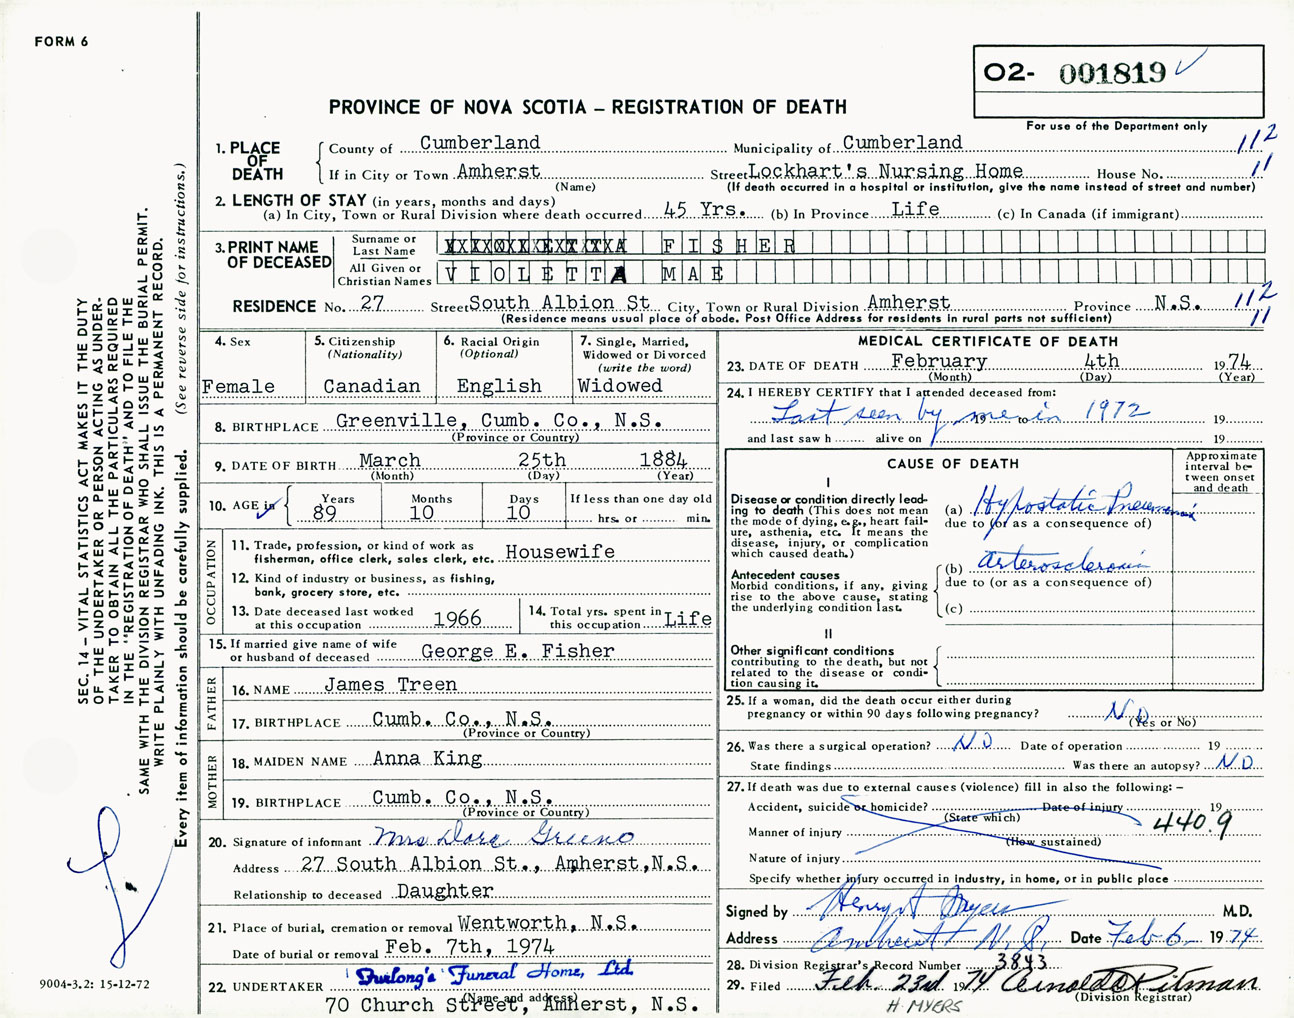 FORM 6
O2- 001819
For use of the Department only
PROVINCE OF NOVA SCOTIA – REGISTRATION OF DEATH
1. PLACE OF DEATH
County of Cumberland Municipality of Cumberland 112
If in City or Town Amherst Street Lockhart's Nursing Home House No. 11
(Name) (If death occurred in a hospital or institution, give the name instead of street and number)
2. LENGTH OF STAY (in years, months and days)
(a) In City, Town or Rural Division where death occurred 45 Yrs. (b) In Province Life (c) In Canada (if immigrant)
3. PRINT NAME OF DECEASED
Surname or Last Name FISHER
All Given or Christian Names VIOLETTA MAE
RESIDENCE No. 27 Street South Albion St City, Town or Rural Division Amherst Province N.S. 112
(Residence means usual place of abode. Post Office Address for residents in rural parts not sufficient) 11
4. Sex
Female
5. Citizenship
(Nationality)
Canadian
6. Racial Origin
(Optional)
English
7. Single, Married,
Widowed or Divorced
(write the word)
Widowed
8. BIRTHPLACE Greenville, Cumb. Co., N.S.
(Province or Country)
9. DATE OF BIRTH March 25th 1884
(Month) (Day) (Year)
10. AGE in
Years Months Days If less than one day old
89 10 10 hrs. or min.
OCCUPATION
11. Trade, profession, or kind of work as
fisherman, office clerk, sales clerk, etc. Housewife
12. Kind of industry or business, as fishing,
bank, grocery store, etc.
13. Date deceased last worked
at this occupation 1966
14. Total yrs. spent in
this occupation Life
15. If married give name of wife
or husband of deceased George E. Fisher
FATHER
16. NAME James Treen
17. BIRTHPLACE Cumb. Co., N.S.
(Province or Country)
MOTHER
18. MAIDEN NAME Anna King
19. BIRTHPLACE Cumb. Co., N.S.
(Province or Country)
20. Signature of informant Mrs Dora Greeno
Address 27 South Albion St., Amherst, N.S.
Relationship to deceased Daughter
21. Place of burial, cremation or removal Wentworth, N.S.
Date of burial or removal Feb. 7th, 1974
22. UNDERTAKER Furlong's Funeral Home, Ltd.
(Name and address)
70 Church Street, Amherst, N.S.
MEDICAL CERTIFICATE OF DEATH
23. DATE OF DEATH February 4th 1974
(Month) (Day) (Year)
24. I HEREBY CERTIFY that I attended deceased from:
Last seen by me in 1972 19 to 19
and last saw h alive on 19
CAUSE OF DEATH
Approximate
interval be-
tween onset
and death
I
Disease or condition directly lead-
ing to death (This does not mean
the mode of dying, e.g., heart fail-
ure, asthenia, etc. It means the
disease, injury, or complication
which caused death.)
(a) Hypostatic Pneumonia
due to (or as a consequence of)
Antecedent causes
Morbid conditions, if any, giving
rise to the above cause, stating
the underlying condition last.
(b) Arterosclerosis
due to (or as a consequence of)
(c)
II
Other significant conditions
contributing to the death, but not
related to the disease or condi-
tion causing it.
25. If a woman, did the death occur either during
pregnancy or within 90 days following pregnancy? No
(Yes or No)
26. Was there a surgical operation? NO Date of operation 19
State findings Was there an autopsy? NO
27. If death was due to external causes (violence) fill in also the following: –
Accident, suicide or homicide? Date of injury 19
(State which)
Manner of injury 440.9
(How sustained)
Nature of injury
Specify whether injury occurred in industry, in home, or in public place
Signed by Henry A Myers M.D.
Address Amherst N.S. Date Feb 6 1974
28. Division Registrar's Record Number 3843
29. Filed Feb. 23rd 1974 Arnold Pitman
(Division Registrar)
H. MYERS
SEC. 14 – VITAL STATISTICS ACT MAKES IT THE DUTY
OF THE UNDERTAKER OR PERSON ACTING AS UNDER-
TAKER TO OBTAIN ALL THE PARTICULARS REQUIRED
IN THE "REGISTRATION OF DEATH" AND TO FILE THE
SAME WITH THE DIVISION REGISTRAR WHO SHALL ISSUE THE BURIAL PERMIT.
WRITE PLAINLY WITH UNFADING INK. THIS IS A PERMANENT RECORD.
Every item of information should be carefully supplied. (See reverse side for instructions.)
9004-3.2: 15-12-72